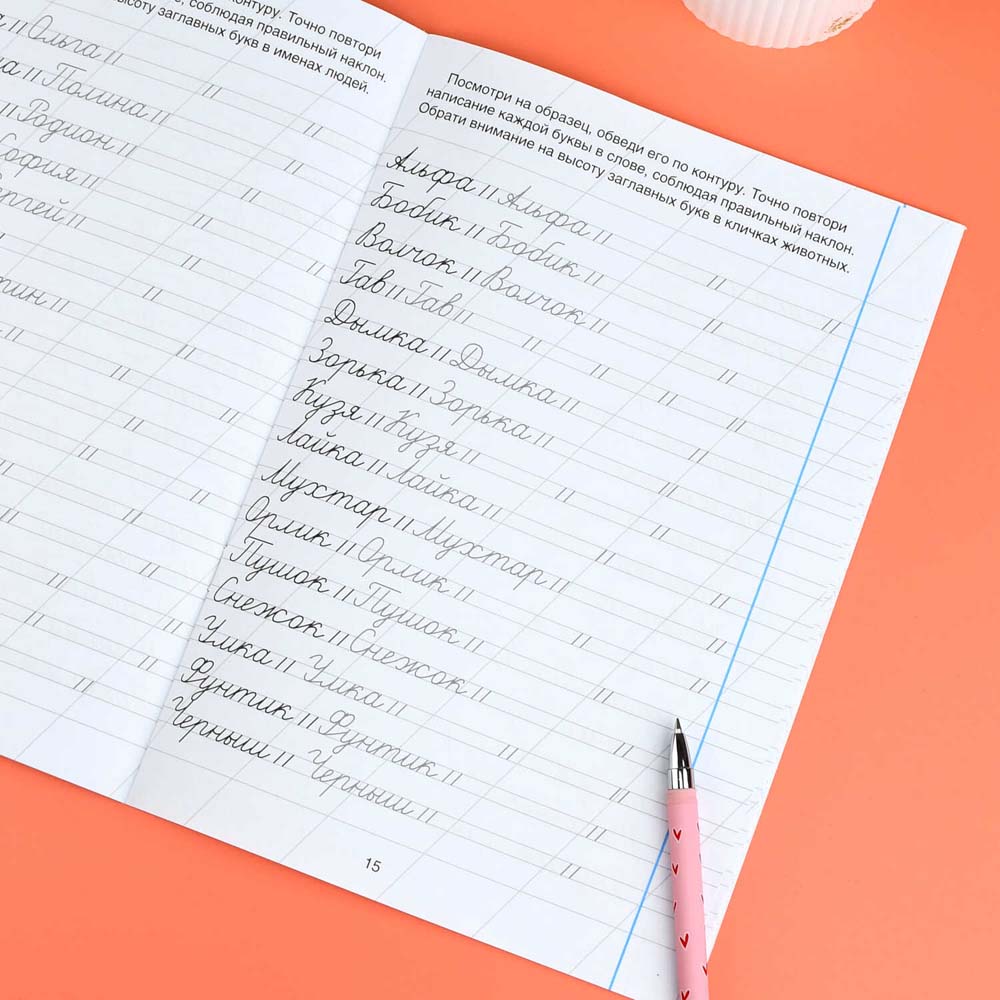 контуру. Точно повтори
соблюдая правильный наклон.
высоту заглавных букв в именах людей.
Ольга
Полина
Родион
София
Сергей
Посмотри на образец, обведи его по контуру. Точно повтори
написание каждой буквы в слове, соблюдая правильный наклон.
Обрати внимание на высоту заглавных букв в кличках животных.
Альфа // Альфа //
Бобик // Бобик // //
Волчок // Волчок // // //
Гав // Гав // // // //
Дымка // Дымка // //
Зорька // Зорька //
Кузя // Кузя // // //
Лайка // Лайка // //
Мухтар // Мухтар //
Орлик // Орлик // //
Пушок // Пушок // //
Снежок // Снежок //
Умка // Умка // // //
Фунтик // Фунтик //
Черныш // Черныш //
15